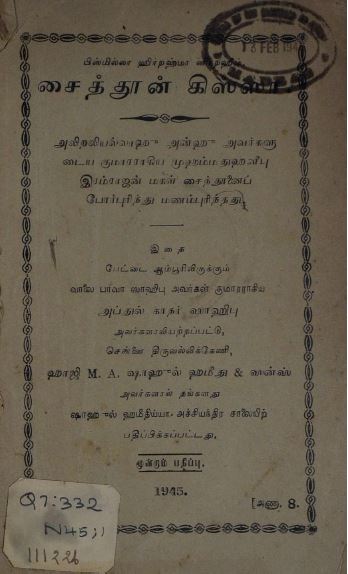 பிஸ்மில்லா ஹிர்றஹ்மா னிர்றஹீம்.
13 FEB 194
MADRAS
சைத்தூன் கிஸ்ஸா
அலிறலியல்லாஹு அன்ஹு அவர்களு
டைய குமாரராகிய முஹம்மதுஹனிபு
இரம்ராஜன் மகள் சைத்தூனைப்
போர்புரிந்து மணம்புரிந்தது.
இதை
பேட்டை ஆம்பூரிலிருக்கும்
வாலை பாவா ஸாஹிபு அவர்கள் குமாரராகிய
அப்துல் காதர் ஸாஹிபு
அவர்களாலியற்றப்பட்டு,
சென்னை திருவல்லிக்கேணி,
ஹாஜி M. A. ஷாஹுல் ஹமீது & ஸன்ஸ்
அவர்களால் தங்களது
ஷாஹுல் ஹமீதிய்யா அச்சியந்திர சாலையிற்
பதிப்பிக்கப்பட்டது.
மூன்றாம் பதிப்பு.
1945.
[அணா. 8.
Q7:332
N45;1
111226